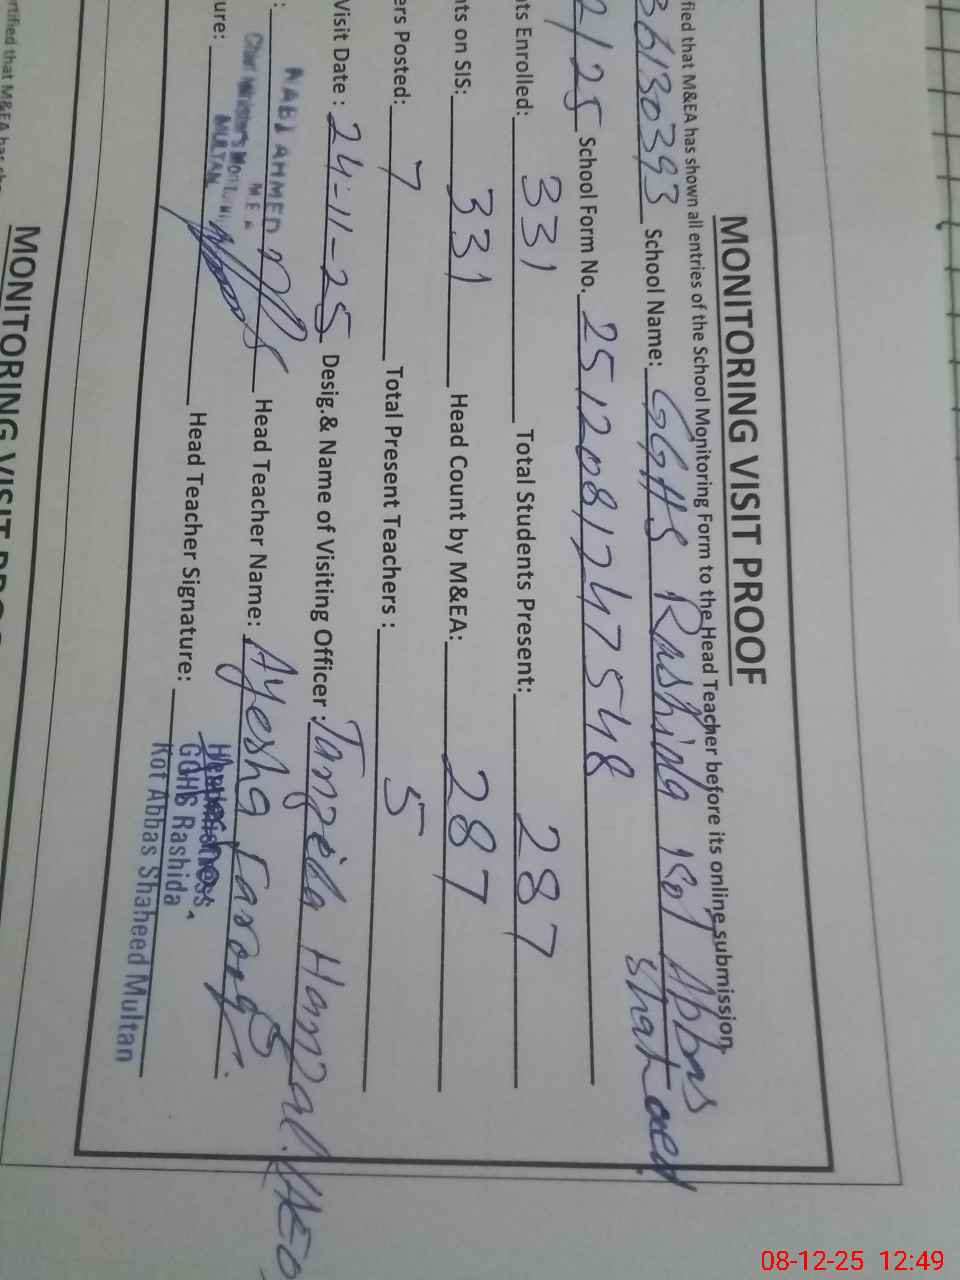 MONITORING VISIT PROOF
fied that M&EA has shown all entries of the School Monitoring Form to the Head Teacher before its online submission.
36130393 School Name: GGHS Rashida Kot Abbas Shaheed
2/25 School Form No. 251208124 7548
nts Enrolled: 331 Total Students Present: 287
nts on SIS: 331 Head Count by M&EA: 287
ers Posted: 7 Total Present Teachers : 5
Visit Date : 24-11-25 Desig.& Name of Visiting Officer : Tanzela Hanzal. (AEO
: NABI AHMED Head Teacher Name: Ayesha Farooq
M.E.A
Chief Minister's Monitoring
MULTAN
ure: Head Teacher Signature:
Headmistress
GGHS Rashida
Kot Abbas Shaheed Multan
ertified that M&EA has sho
MONITORING VISIT PROO
08-12-25 12:49